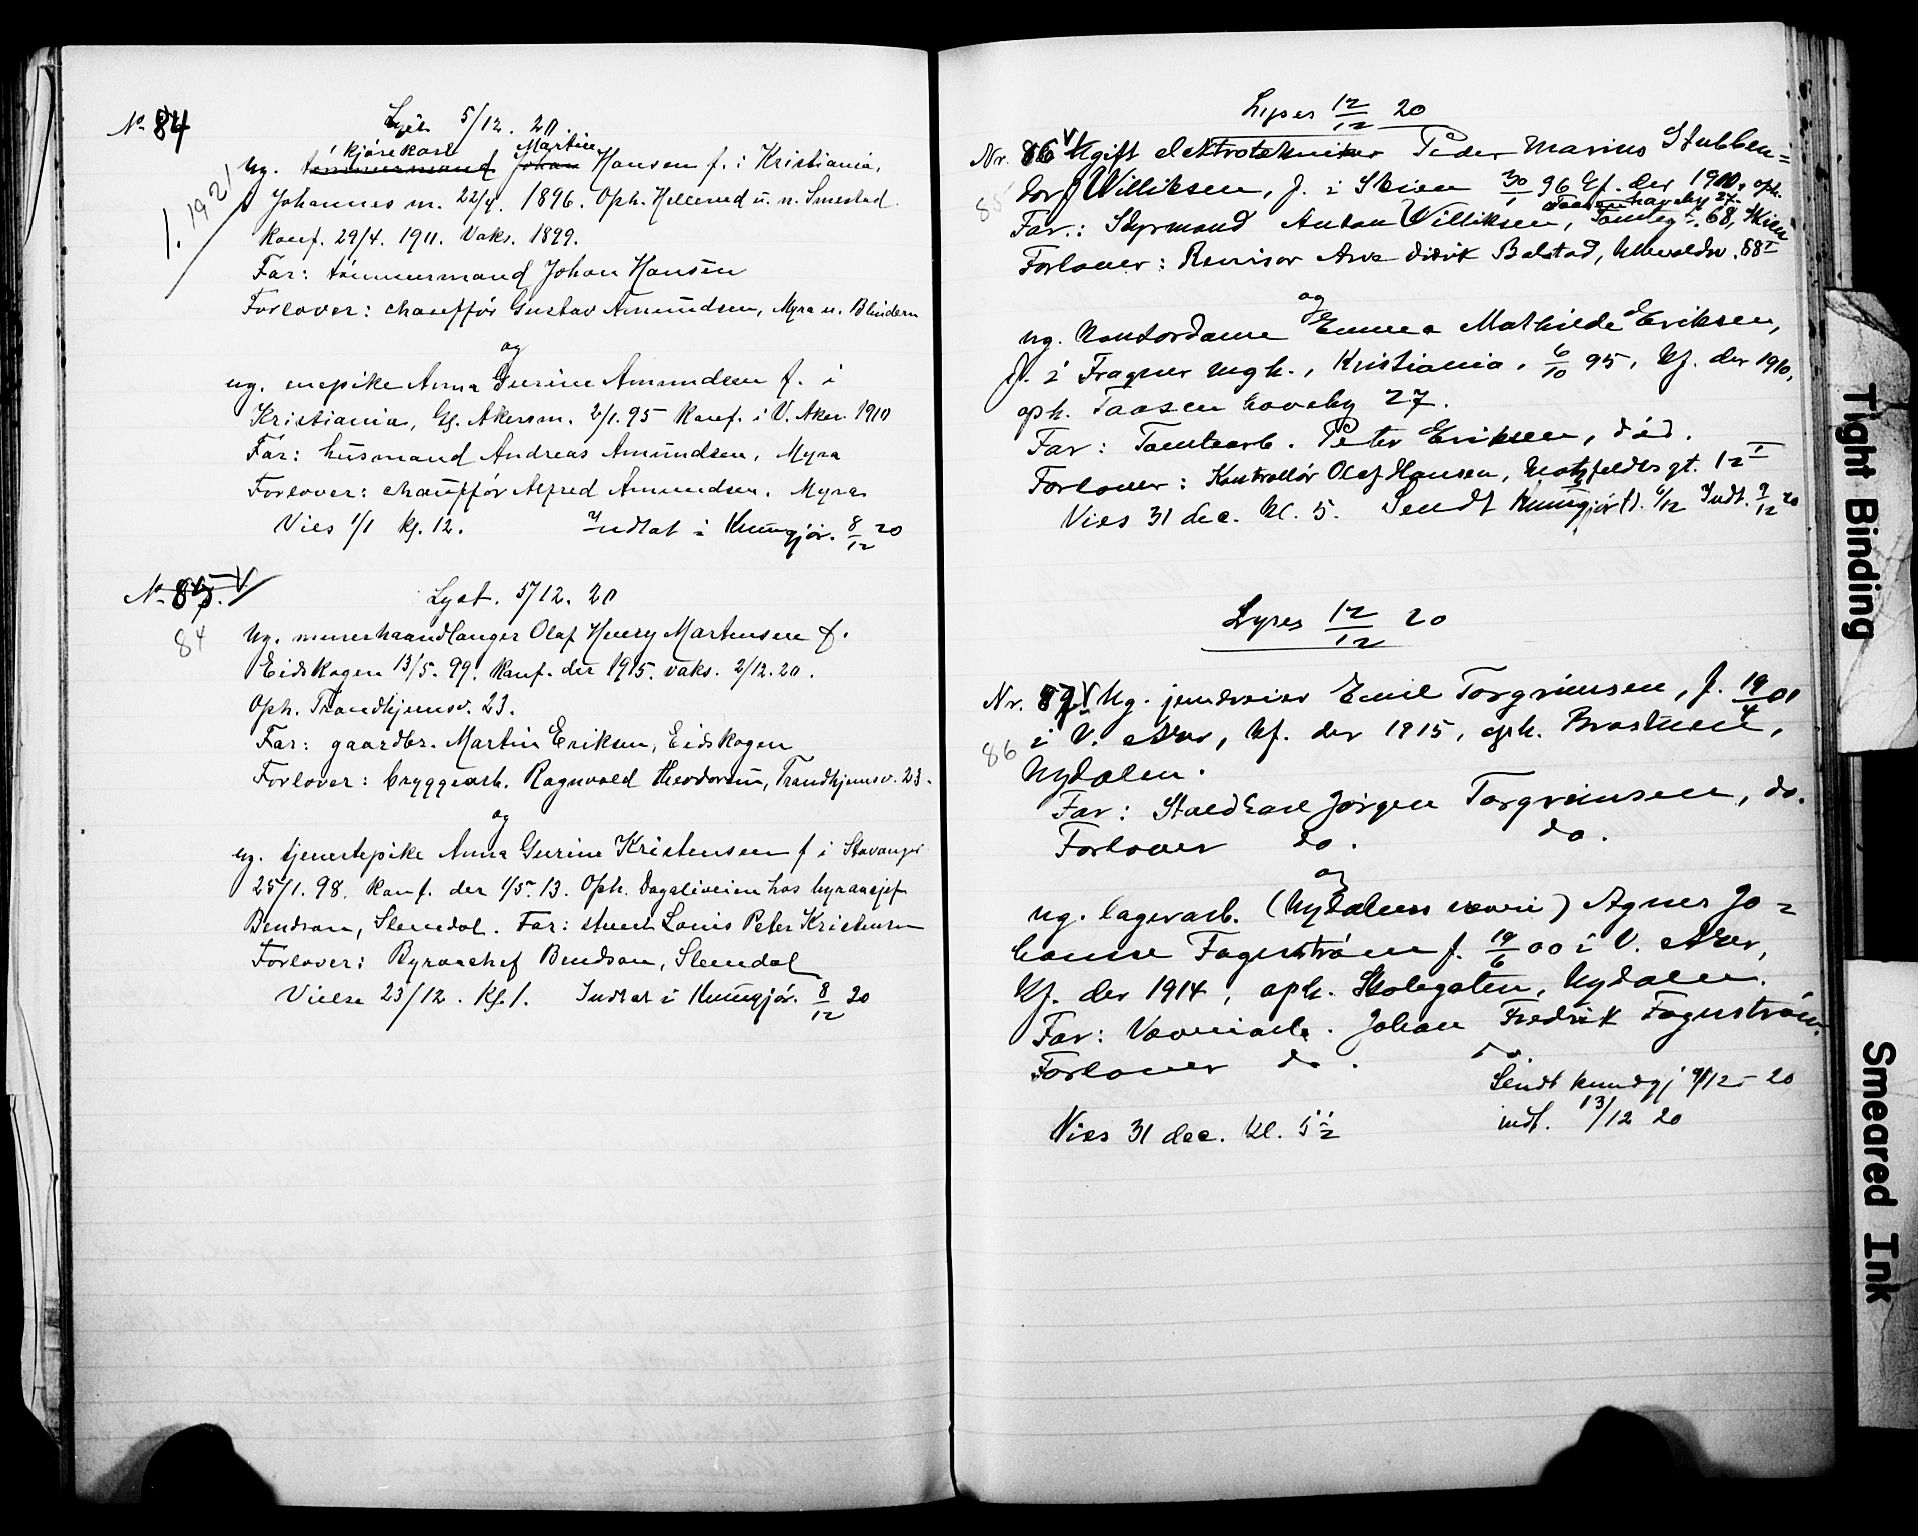 Nr. 84
Lyst 5/12. 20.
kjørekarl Martin
1. 1921
ug. tømmermand Johan Hansen f. i Kristiania,
Johannes m. 22/4. 1896. Oph. Hellerud u. n. Smestad.
Konf. 29/4. 1911. Vaks. 1899.
Far: tømmermand Johan Hansen
Forlover: chauffør Gustav Amundsen, Myra n. Blindern
og
ug. enepike Anna Gurine Amundsen f. i
Kristiania, Gl. Akersm. 2/1. 95 Konf. i V. Aker 1910
Far: husmand Andreas Amundsen, Myra
Forlover: chauffør Alfred Amundsen. Myra
Vies 1/1 kl. 12. Indtat i Kunngjør. 8/12 20
Nr. 85. V
84
Lyst. 5/12. 20
Ug. murerhaandlanger Olaf Henry Martinsen f.
Eidskogen 13/5. 99. Konf. der 1915. vaks. 2/12. 20.
Oph. Trondhjemsv. 23.
Far: gaardbr. Martin Eriksen, Eidskogen
Forlover: bryggearb. Ragnvald Theodorsen, Trondhjemsv. 23.
og
ug. tjenestepike Anna Gurine Kristensen f i Stavanger
25/1. 98. Konf. der 1/5. 13. Oph. Dagaliveien hos byraasjef
Bendson, Slemdal. Far: Louis Peter Kristensen
Forlover: Byraachef Bendson, Slemdal
Vielse 23/12. Kl. 1. Indtat i Kunngjør. 8/12 20
Lyses 12/12 20
Nr. 86 V Ugift elektrotekniker Peder Marius Stubben=
85
dorf Williksen, f. i Skien 30/1 96 Kf. der 1910, oph.
Taasen haveby 27.
Far: Styrmand Anton Williksen, 68, Skien
Forlover: Revisor Didrik Balstad, Ullevaldsv. 88 I
og
ug. Kontordame Emma Mathilde Eriksen,
f. i Fragner mgh., Kristiania, 6/10 95, Kf. der 1910,
oph. Taasen haveby 27.
Far: Tomtearb. Peter Eriksen, død.
Forlover: Kontrollør Olaf Hansen, Motzfeldtsgt. 12 I
Vies 31 dec. Kl. 5. Sendt Kunngjør(). 6/12 Indt. 9/12 20
Lyses 12/12 20
Nr. 87 V Ug. jerndreier Emil Torgrimsen, f. 19/4 01
86
i V. Aker, Kf. der 1915, oph.
Nydalen.
Far: Staldkarl Jørgen Torgrimsen, do.
Forlover do. do.
og
ug. lagerarb. (Nydalens væveri) Agnes Jo=
hanne Fagerstrøm f. 19/6 00 i V. Aker,
Kf. der 1914, oph. Skolegaten, Nydalen.
Far: Væveriarb. Johan Fredrik Fagerstrøm.
Forlover do. do.
Sendt kundgj 9/12 - 20
Vies 31 dec. Kl. 5 1/2
indt. 13/12 20
Tight Binding
Smeared Ink